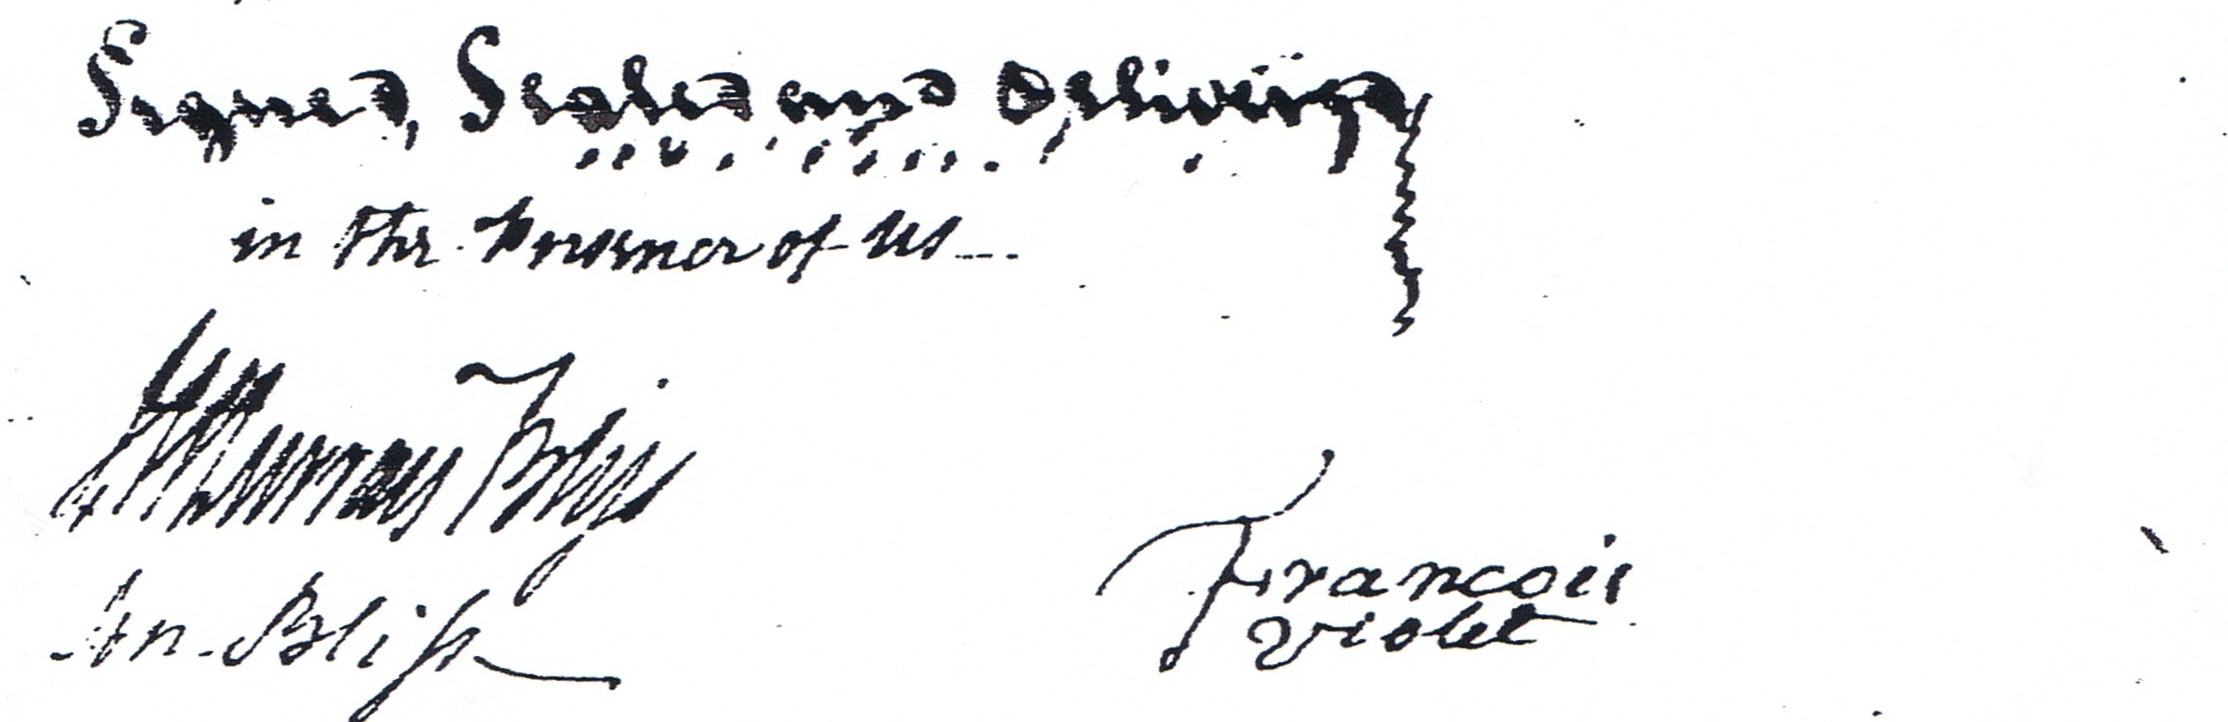 Signed, Sealed and Delivered
in the Presence of us
Murray Bliss
Jn. Bliss
Francois
violet